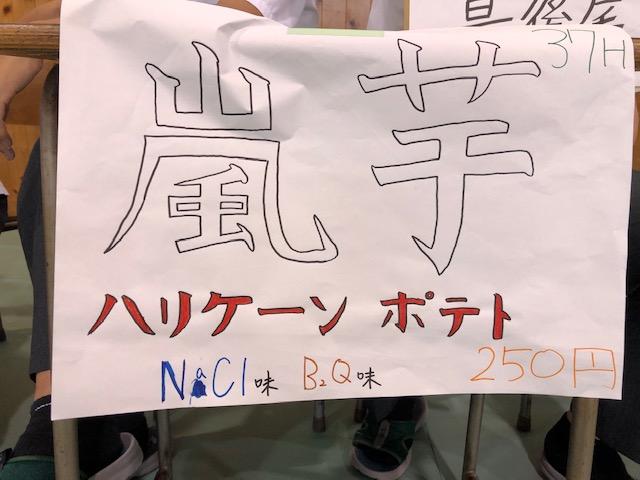 37H
嵐芋
ハリケーン ポテト
NaCl味 B₂Q味
250円